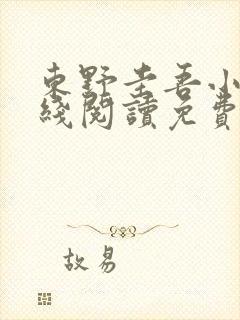 東野圭吾小
綫閱讀免費
故易